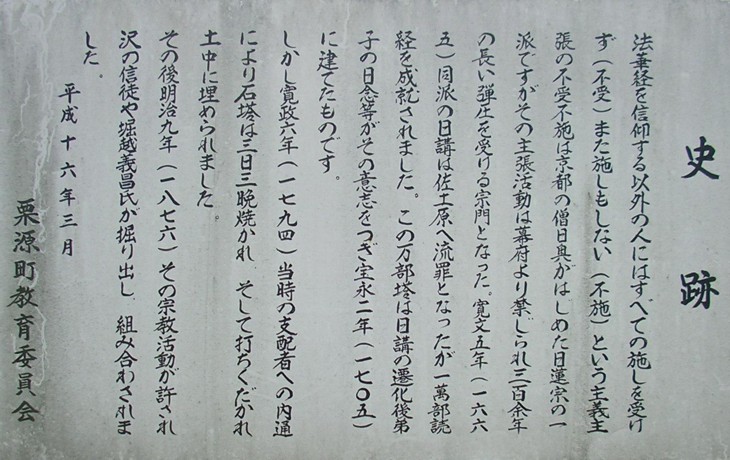 史跡
法華経を信仰する以外の人にはすべての施しを受け
ず（不受）また施しもしない（不施）という主義主
張の不受不施は京都の僧日奥がはじめた日蓮宗の一
派ですがその主張活動は幕府より禁じられ三百余年
の長い弾圧を受ける宗門となった。寛文五年（一六六
五）同派の日講は佐土原へ流罪となったが一萬部読
経を成就されました。この万部塔は日講の遷化後弟
子の日念等がその意志をつぎ宝永二年（一七〇五）
に建てたものです。
しかし寛政六年（一七九四）当時の支配者への内通
により石塔は三日三晩焼かれ そして打ちくだかれ
土中に埋められました。
その後明治九年（一八七六）その宗教活動が許され
沢の信徒や堀越義昌氏が掘り出し 組み合わされま
した。
平成十六年三月
栗源町教育委員会